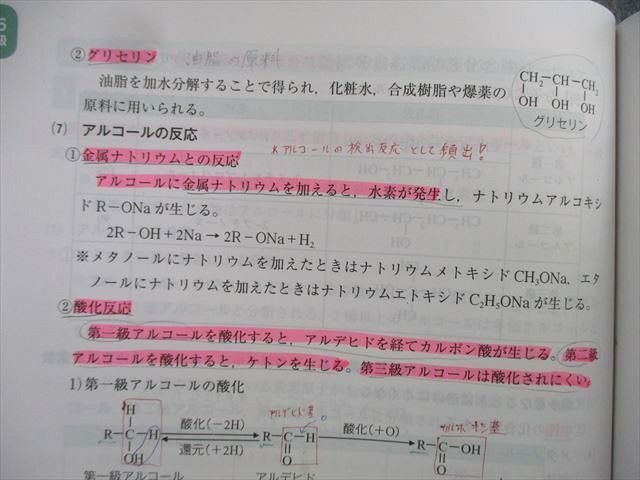 5
級
②グリセリン 油脂の原料
油脂を加水分解することで得られ，化粧水，合成樹脂や爆薬の
原料に用いられる。
CH₂－CH－CH₂
OH OH OH
グリセリン
(7) アルコールの反応
①金属ナトリウムとの反応 *アルコールの検出反応として頻出!
アルコールに金属ナトリウムを加えると，水素が発生し，ナトリウムアルコキシ
ド R－ONa が生じる。
2R－OH＋2Na → 2R－ONa＋H₂
※メタノールにナトリウムを加えたときはナトリウムメトキシド CH₃ONa，エタ
ノールにナトリウムを加えたときはナトリウムエトキシド C₂H₅ONa が生じる。
②酸化反応
第一級アルコールを酸化すると，アルデヒドを経てカルボン酸が生じる。第二級
アルコールを酸化すると，ケトンを生じる。第三級アルコールは酸化されにくい。
1)第一級アルコールの酸化
H
R－C－H
OH
酸化(－2H)
還元(＋2H)
アルデヒド基
R－C－H
O
酸化(＋O)
カルボキシ基
R－C－OH
O
第一級アルコール アルデヒド